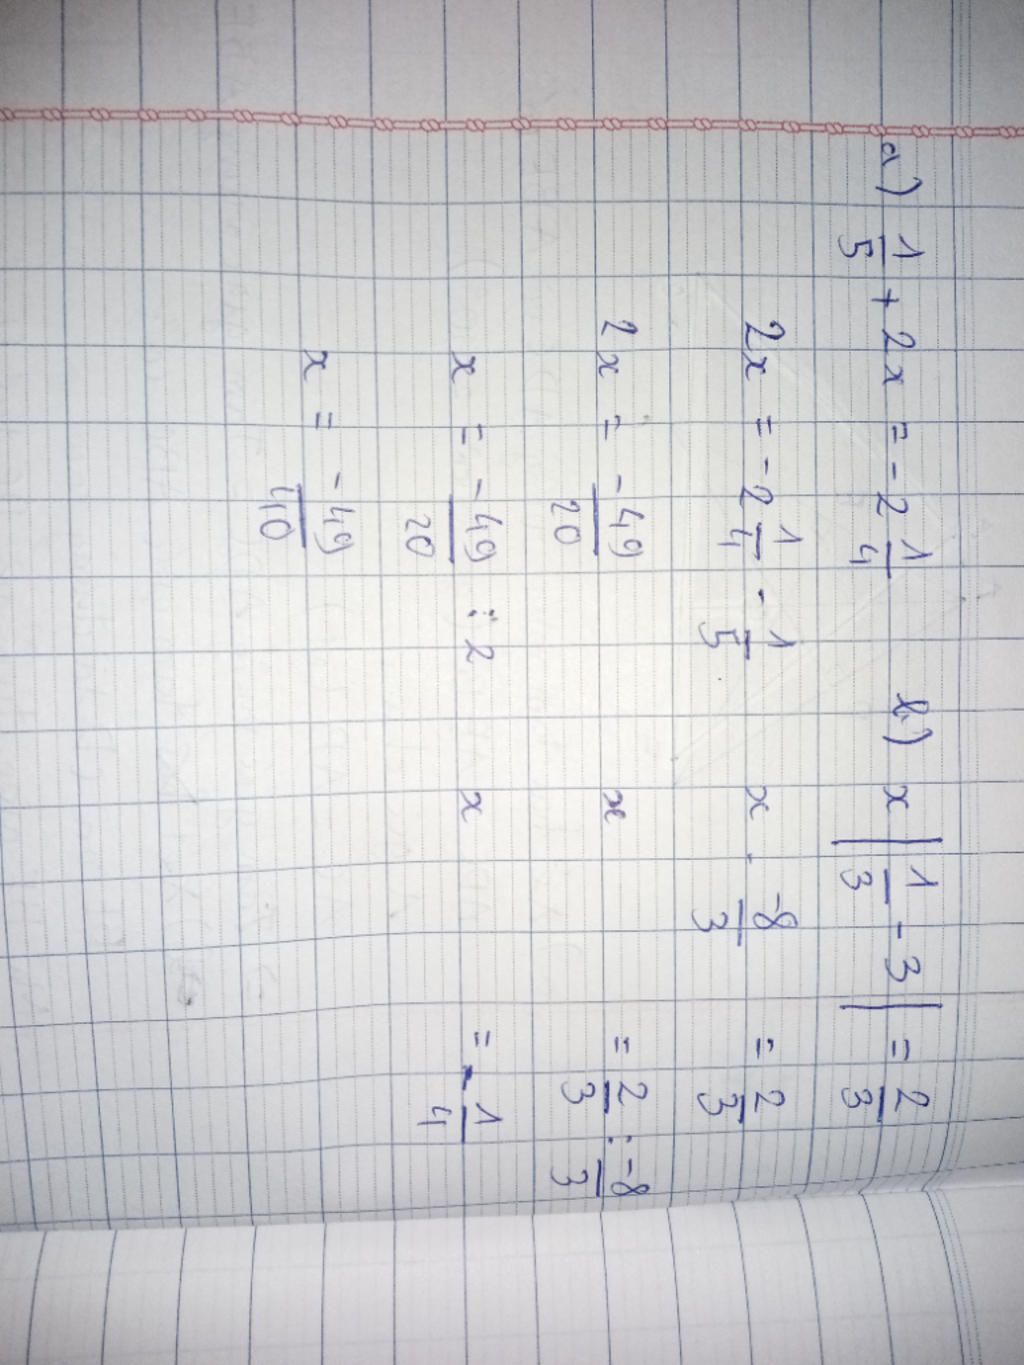 a) 1/5 + 2x = -2 1/4
2x = -2 1/4 - 1/5
2x = -49/20
x = -49/20 : 2
x = -49/40
b) x |1/3 - 3| = 2/3
x . -8/3 = 2/3
x = 2/3 : -8/3
x = -1/4